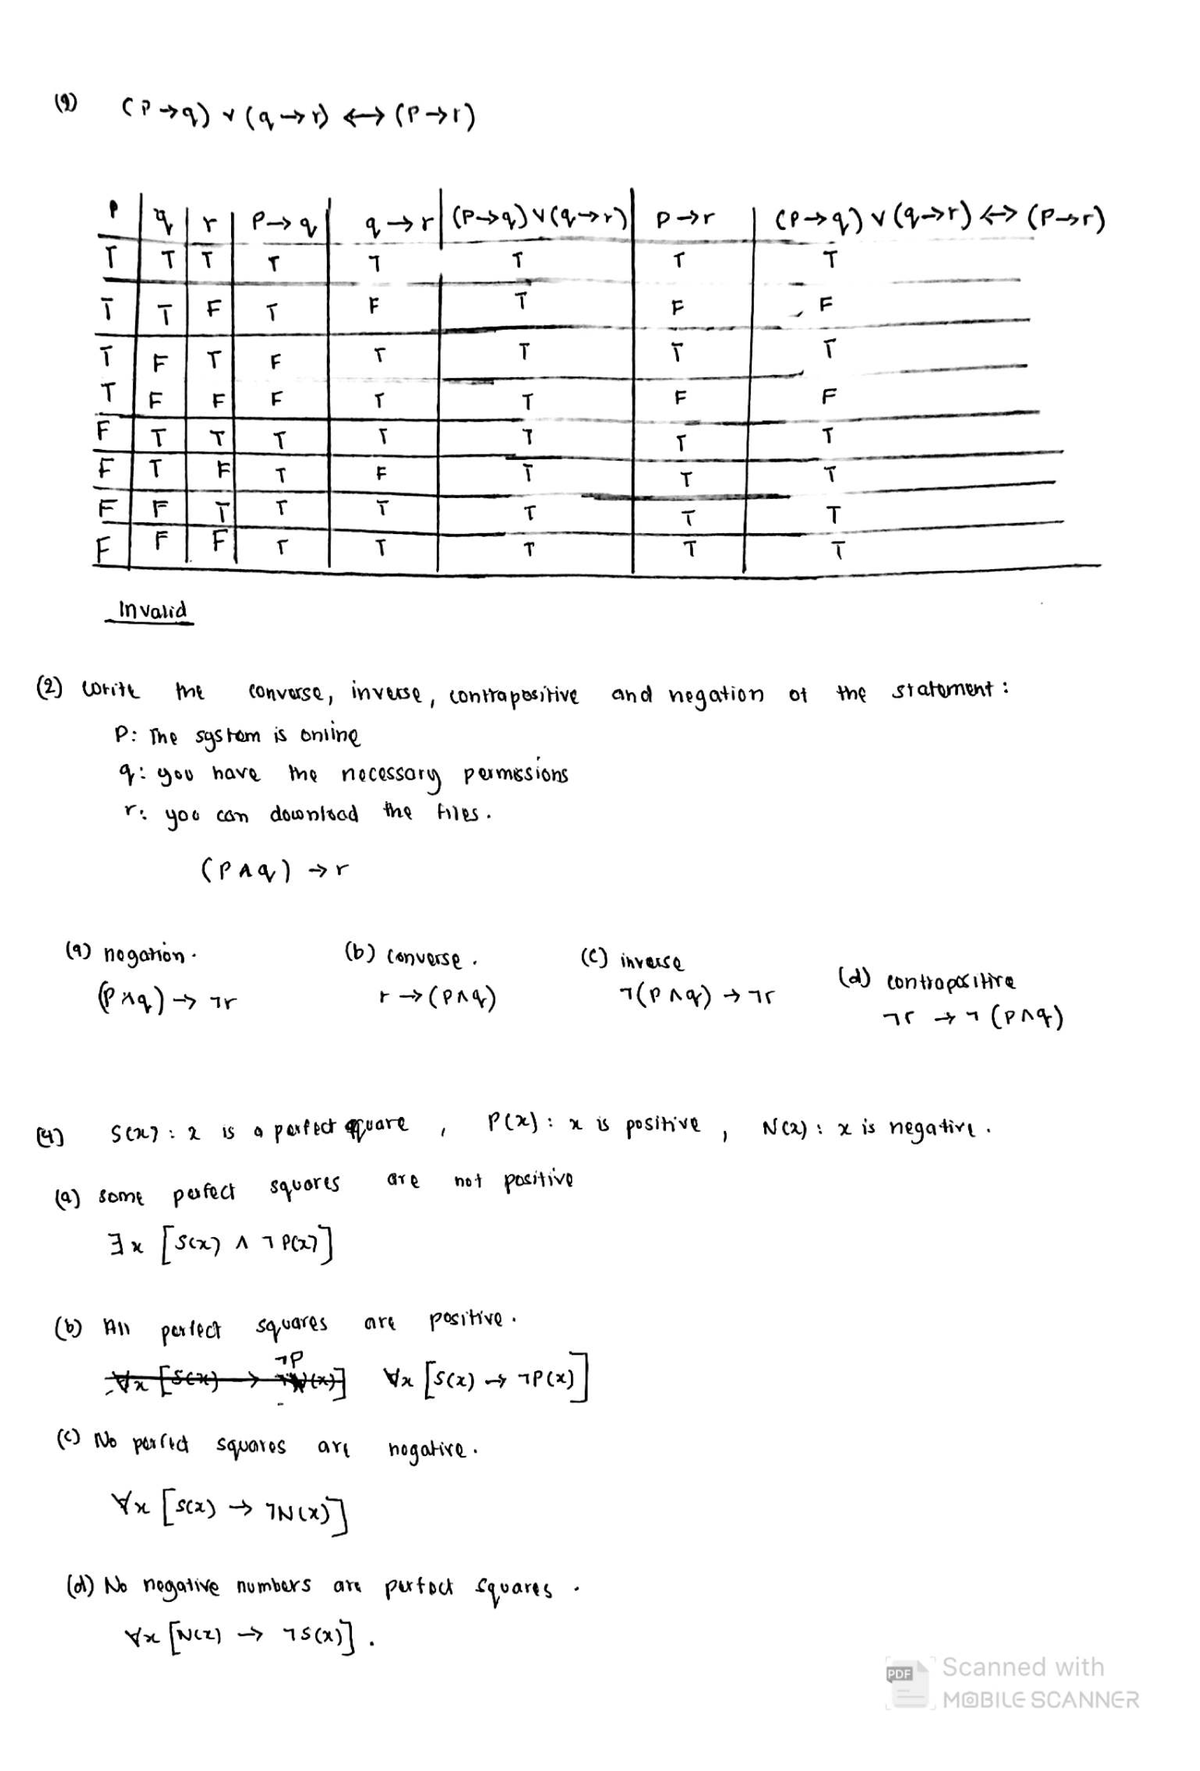 (1) (P→q) ∨ (q→r) ↔ (P→r)
P | q | r | P→q | q→r | (P→q)∨(q→r) | P→r | (P→q) ∨ (q→r) ↔ (P→r)
T | T | T | T | T | T | T | T
T | T | F | T | F | T | F | F
T | F | T | F | T | T | T | T
T | F | F | F | T | T | F | F
F | T | T | T | T | T | T | T
F | T | F | T | F | T | T | T
F | F | T | T | T | T | T | T
F | F | F | T | T | T | T | T
Invalid
(2) Write the converse, inverse, contrapositive and negation of the statement:
P: The system is online
q: you have the necessary permissions
r: you can download the files.
(P∧q) → r
(a) negation. (b) converse. (c) inverse (d) contrapositive
(P∧q) → ¬r r → (P∧q) ¬(P∧q) → ¬r ¬r → ¬(P∧q)
(4) S(x): x is a perfect square, P(x): x is positive, N(x): x is negative.
(a) some perfect squares are not positive
∃x [S(x) ∧ ¬P(x)]
(b) All perfect squares are positive.
¬P
∀x [S(x) → ¬N(x)] ∀x [S(x) → ¬P(x)]
(c) No perfect squares are negative.
∀x [S(x) → ¬N(x)]
(d) No negative numbers are perfect squares.
∀x [N(x) → ¬S(x)].
PDF
Scanned with
MOBILE SCANNER